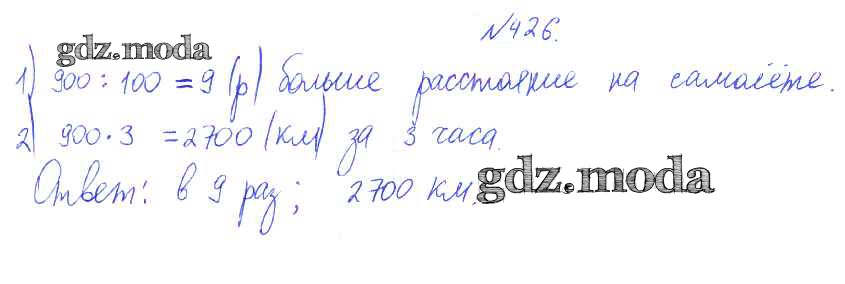 №426.
gdz.moda
1) 900 : 100 = 9 (р) больше расстояние на самолёте.
2) 900 · 3 = 2700 (км) за 3 часа.
gdz.moda
Ответ: в 9 раз; 2700 км.